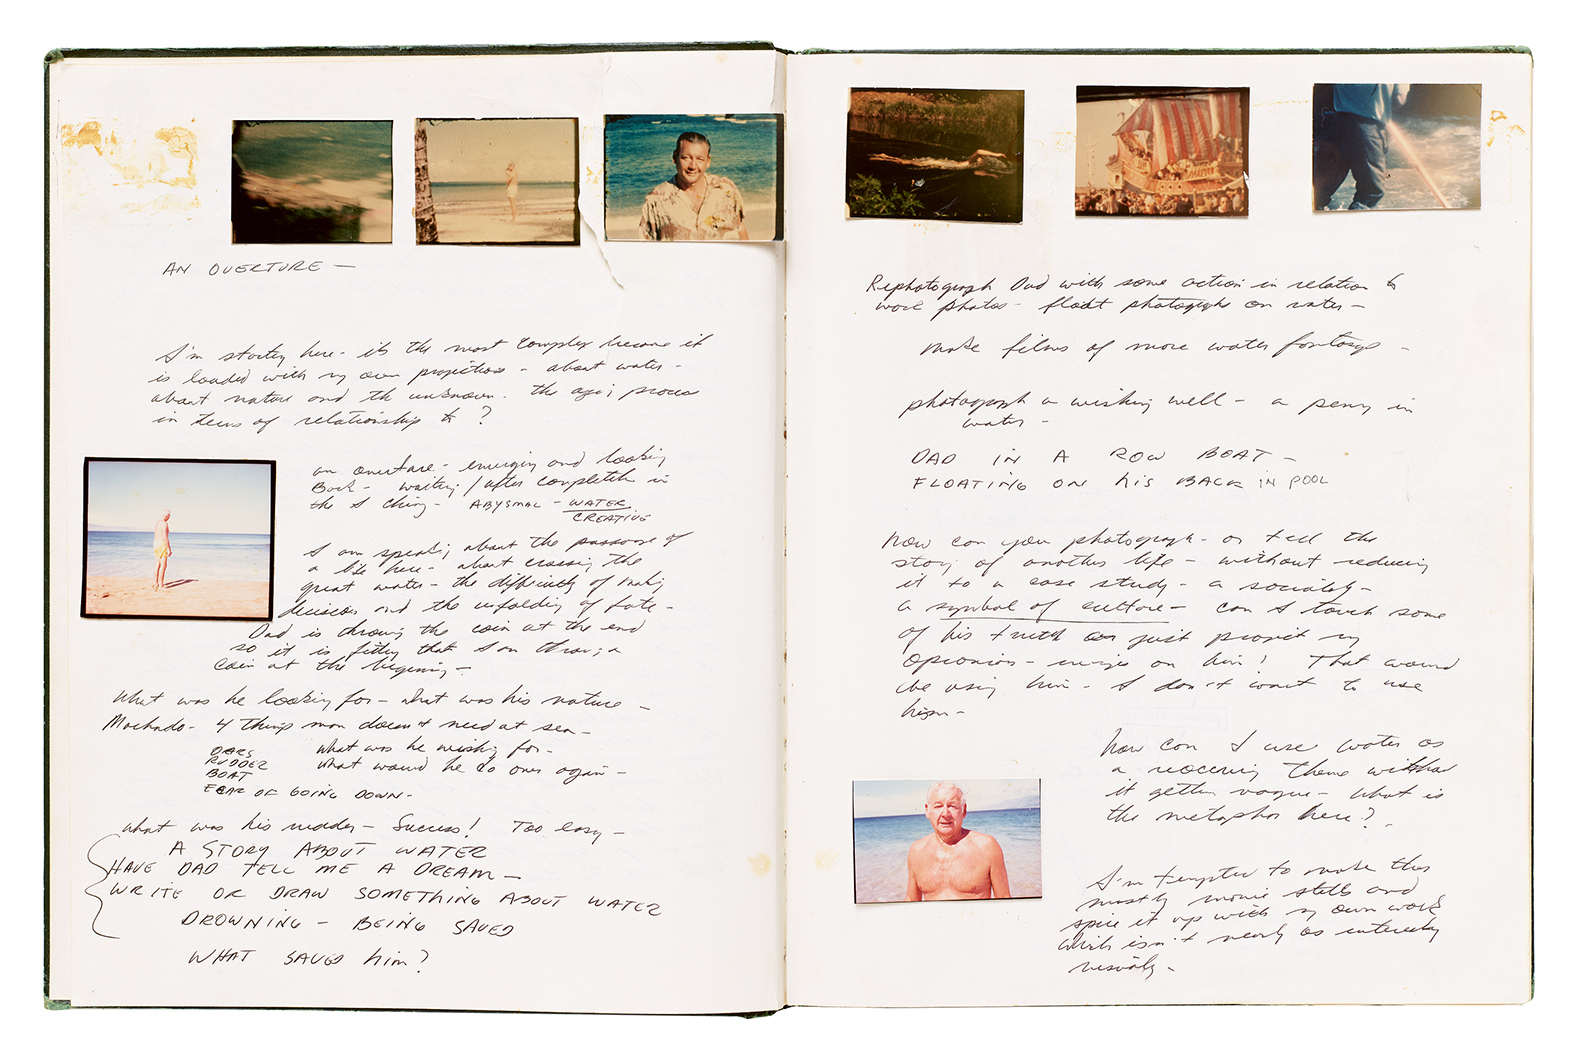 AN OVERTURE —
I'm starting here - it's the most complex because it
is loaded with my own projections - about water -
about nature and the unknown. the aging process
in terms of relationship to ?
an overture - emerging and looking
Back - waiting / after completion in
the I Ching - ABYSMAL - WATER
CREATIVE
I am speaking about the passage of
a life here - about crossing the
great water - the difficulty of making
decisions and the unfolding of fate -
Dad is throwing the coin at the end
so it is fitting that I am throwing a
coin at the beginning —
What was he looking for - what was his nature —
Machado - 4 things man doesn't need at sea —
OARS what was he wishing for -
RUDDER what would he do over again —
BOAT
FEAR OF GOING DOWN -
what was his rudder - Success! Too easy —
A STORY ABOUT WATER
HAVE DAD TELL ME A DREAM —
WRITE OR DRAW SOMETHING ABOUT WATER
DROWNING - BEING SAVED
WHAT SAVED him?
Rephotograph Dad with some action in relation to
work photos - float photographs on water —
make films of more water footage -
photograph a wishing well - a penny in
water -
DAD IN A ROW BOAT —
FLOATING ON his BACK IN POOL
how can you photograph - or tell the
story of another life - without reducing
it to a case study - a
a symbol of culture - can I touch some
of his truth or just project my
opinions - on him! That would
be using him - I don't want to use
him -
how can I use water as
a reoccuring theme without
it getting vague - what is
the metaphor here?
I'm tempted to make this
mostly movie stills and
spice it up with my own work
which isn't nearly as interesting
visually -